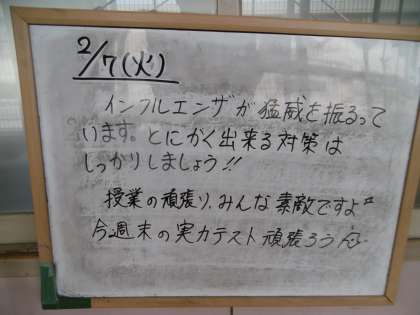 2/7(火)
インフルエンザが猛威を振るって
います。とにかく出来る対策は
しっかりしましょう!!
授業の頑張り、みんな素敵ですよ
今週末の実力テスト頑張ろう